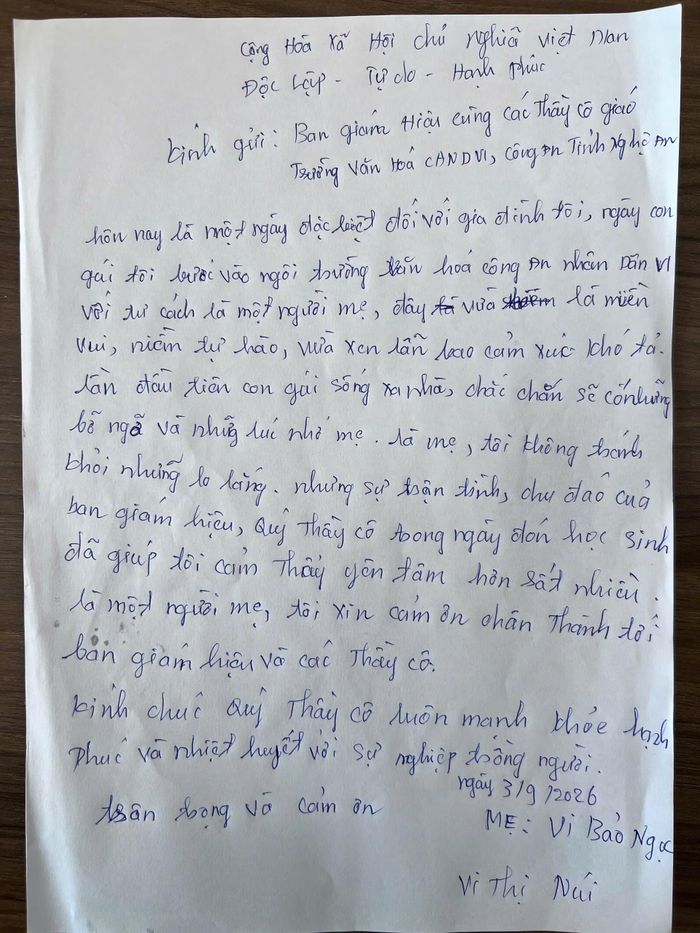 Cộng Hoà Xã Hội chủ nghĩa việt Nan
Độc lập - Tự do - Hạnh phúc
Kính gửi: Ban giám Hiệu cùng các thầy cô giáo
Trường Văn Hoá CAND VI, công An Tỉnh Nghệ An
hôn nay là một ngày đặc biệt đối với gia đình tôi, ngày con
gái tôi bước vào ngôi trường văn hoá công An nhân Dân VI
với tư cách là một người mẹ, đây vừa là miền
vui, niềm tự hào, vừa xen lẫn bao cảm xúc khó tả.
lần đầu tiên con gái sống xa nhà, chắc chắn sẽ có những
bỡ ngỡ và những lúc nhớ mẹ. là mẹ, tôi không tránh
khỏi những lo lắng. nhưng sự tận tình, chu đáo của
ban giám hiệu, Quý Thầy cô trong ngày đón học sinh
đã giúp tôi cảm thấy yên tâm hơn sất nhiều.
là một người mẹ, tôi xin cảm ơn chân Thành tới
ban giám hiệu và các Thầy cô.
Kính chúc Quý Thầy cô luôn mạnh khỏe hạnh
phúc và nhiệt huyết với sự nghiệp trồng người.
ngày 3/9/2026
trân trọng và cảm ơn
MẸ: Vi Bảo Ngọc
Vi Thị Núi